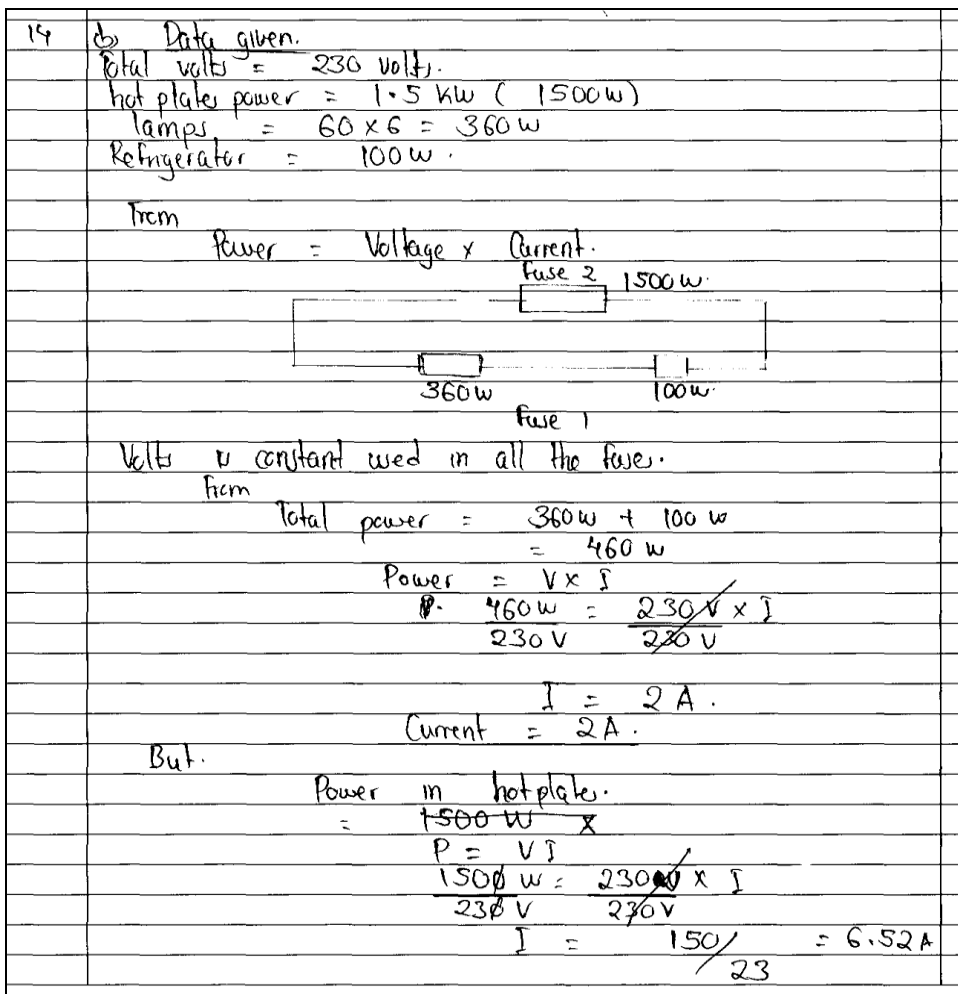 14 b) Data given.
Total volts = 230 volts.
hot plates power = 1.5 KW ( 1500w)
lamps = 60 x 6 = 360 w
Refrigerator = 100 w .
From
Power = Voltage x Current.
Fuse 2 1500 w.
360 w 100 w.
Fuse 1
Volts is constant used in all the fuses.
From
Total power = 360 w + 100 w
= 460 w
Power = V x I
P. 460 w = 230 V x I
230 V 230 V
I = 2 A .
Current = 2 A .
But.
Power in hot plates.
= 1500 W x
P = V I
1500 w = 230 V x I
230 V 230 V
I = 150/23 = 6.52 A